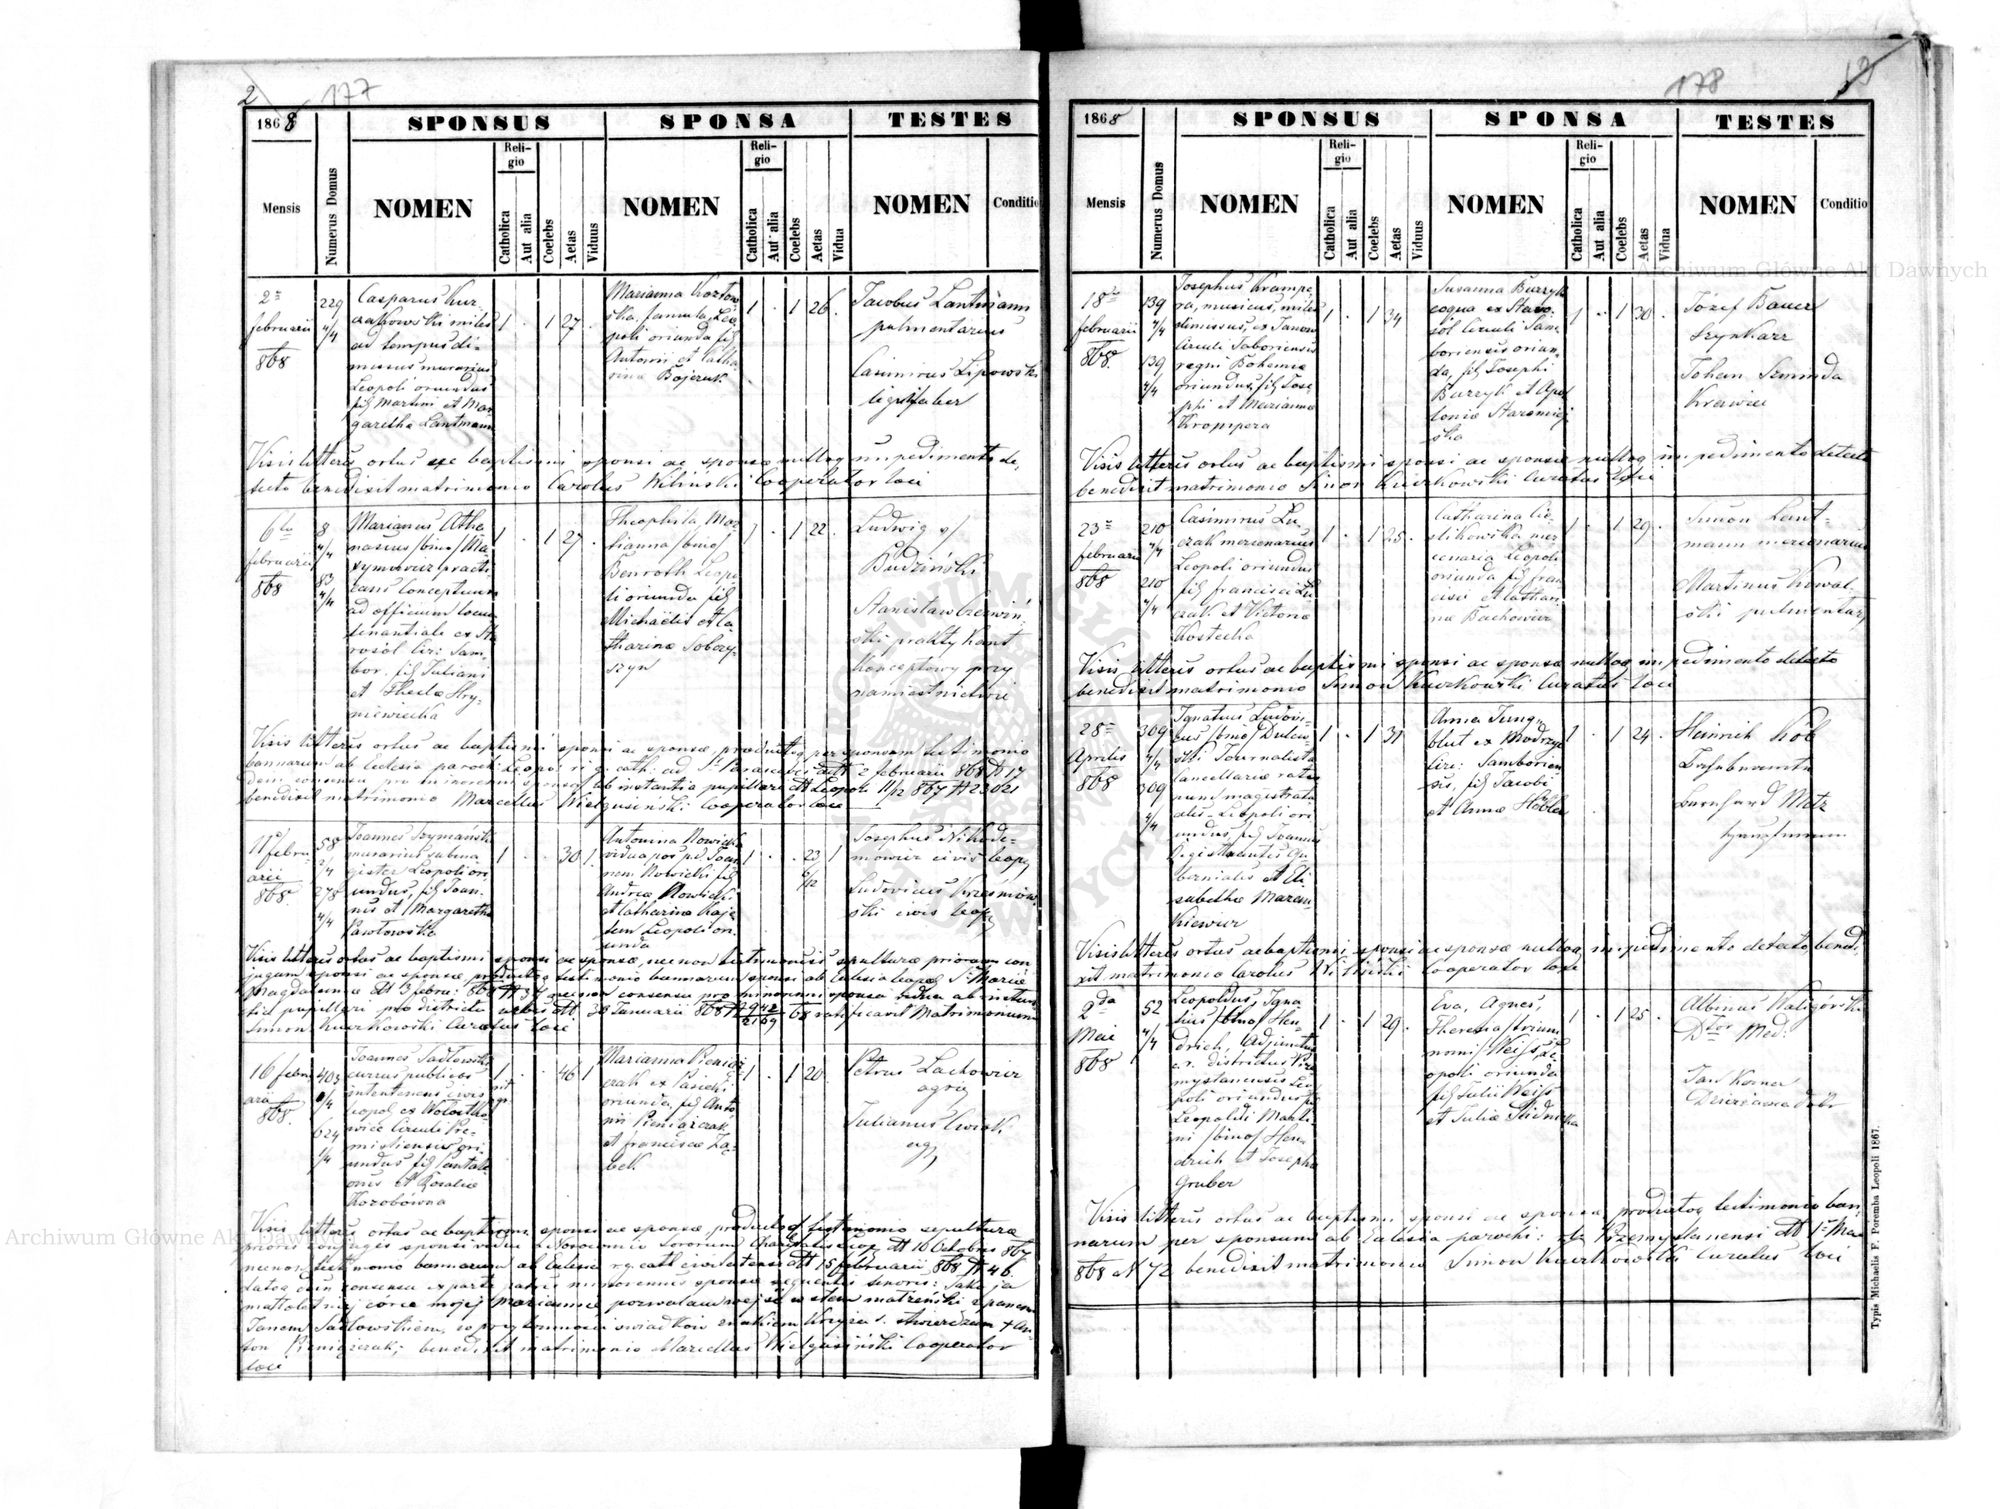 2 177
1868 SPONSUS SPONSA TESTES
Mensis Numerus Domus NOMEN Religio Catholica Aut alia Coelebs Aetas Viduus NOMEN Religio Catholica Aut alia Coelebs Aetas Vidua NOMEN Conditio
2
februarii
868
229
4/4
Casparus Kur-
czakowski miles
ad tempus di-
missus murarius
Leopoli oriundus
fil Martini et Mar
garetha Lantmann
1 . 1 27 .
Marianna Kozłow
ska, famula, Leo
poli oriunda fil
Antonii et Catha
rina Bojczuk
1 . 1 26 .
Jacobus Lantmann
pulmentarius
Casimirus Lipowski
lignifaber
Visis litteris ortus ac baptismi sponsi ac sponsae nulloq impedimento de,
tecto benedixit matrimonio Carolus Wiliński Cooperator loci
6
februarii
868
8
4/4
83
4/4
Marianus Atha
nasius /bino/ Ma
xymowicz practi
cans Conceptuum
ad officium locum
tenentiale ex Sta
rosol Cir: Sam,
bor. fil Juliani
et Theclae Hry-
niewiecka
1 . 1 27 .
Theophila Mar
tianna /bino/
Benroth Leopo
li oriunda fil
Michaëlis et Ca
tharinae Sobczy-
szyn
1 . 1 22 .
Ludwig
Budziński
Stanisław Czerwiń,
ski praktykant
Konceptowy przy
namiestnictwie
Visis litteris ortus ac baptismi sponsi ac sponsae, productoq per sponsam testimonio
bannorum ab Ecclesia paroch: Leopol r. g. cath: ad St Parascevis dtt 2 februarii 868 N 17
dein consensu pro minorenni sponsa ab instantia pupillari dtt Leopoli 11/12 867 N 23021
benedixit matrimonio Marcellus Wielgusiński Cooperator loci
11 febru
arii
868
58
2/4
278
4/4
Joannes Szymański
murarius subma
gister Leopoli ori
undus, fil Joan-
nis et Margaretha
Pawłowska
1 . . 30 1
Antonina Nowicka
vidua post p.d. Joan
nem Nowicki fil
Andrea Nowicki
et Catharina Kaje
tan Leopoli ori,
unda
1 . . 23 6/12 1
Josephus Nikode-
mowicz civis leop
Ludovicus Krzesimow
ski civis leop
Visis litteris ortus ac baptismi sponsi ac sponsae, necnon testimoniis sepulturae priorum con
jugum sponsi ac sponsae productoq testimonio bannorum sponsi ab Ecclesia leop. St Mariae
Magdalenae dtt 9 febru: 868 necnon consensu pro minorenni sponsa vidua ab instan
tia pupillari pro districtu urbis dtt 28 Januarii 868 N 2942/2169 68 ratificavit Matrimonium
Simon Kurkowski Curatus loci
16 febru
arii
868.
403
4/4
624
1/4
Joannes Sadłowski
currus publicos
intertenens civis
leopol ex Wołost
wice Circuli Pre-
misliensis ori
undus fil Pantale
onis et Rosaliae
Kozobówna
1 . . 46 1
Marianna Pienią
czak ex Pasieki
oriunda fil Anto,
nii Pieniączak
et francisca Zą-
bek
1 . 1 20 .
Petrus Lachowicz
agric
Julianus Cwiok
agr
Visis litteris ortus ac baptismi sponsi ac sponsae productoq testimonio sepulturae
prioris conjugis sponsi viduae a Nosocomio Sororum Charitatis Leop. dtt 10 Octobris 867
necnon testimonio bannorum ab Ecclesia r. g. cath civitatensi dtt 15 februarii 868 N 46.
datoq dein consensu ex parte patris minorennis sponsae sequentis tenoris: Jako ja
małoletniej córce mojej Mariannie pozwalam wejść w stan małżeński z panem
Janem Sadłowskiem, co przytomności świadków znakiem Krzyża s. stwierdzam + An-
ton Pieniączak; benedixit matrimonio Marcellus Wielgusiński Cooperator
loci
178
1868 SPONSUS SPONSA TESTES
Mensis Numerus Domus NOMEN Religio Catholica Aut alia Coelebs Aetas Viduus NOMEN Religio Catholica Aut alia Coelebs Aetas Vidua NOMEN Conditio
18
februarii
868.
139
4/4
139
4/4
Josephus Krompe
ra, musicus, miles
dimissus, ex Janow
Circuli Taboriensis
regni Bohemiae
oriundus, fil Jose
phi et Mariannae
Krompera
1 . 1 34 .
Susanna Burzyk
coqua ex Staro,
sol Circuli Sam
boriensis oriun-
da, fil Josephi
Burzyk et Apol
loniae Staromiej
ska
1 . 1 30 .
Józef Bauer
Szynkarz
Johan Szmyda
Krawiec
Visis litteris ortus ac baptismi sponsi ac sponsae nulloq impedimento detecto
benedixit matrimonio Simon Kurkowski Curatus loci
23
februarii
868
210
4/4
210
4/4
Casimirus Łu
czak mercenarius
Leopoli oriundus
fil francisci Łu
czak et Victoriae
Kostecka
1 . 1 25 .
Catharina Cie
slikowska mer
cenaria Leopoli
oriunda fil fran
cisci et Cathari
nae Bachowicz
1 . 1 29 .
Simon Lant-
mann mercenarius
Martinus Kowal
ski pulmentar,
Visis litteris ortus ac baptismi sponsi ac sponsae nulloq impedimento detecto
benedixit matrimonio Simon Kurkowski Curatus loci
28
Aprilis
868
309
4/4
309
4/4
Ignatius Ludovi-
cus /bino/ Dulem-
ski Journalista
cancellariae ratio
num magistratu
alis Leopoli ori
undus, fil Joannis
Registrantis Gu
bernialis et Eli
sabetha Marcin-
kiewicz
1 . 1 31 .
Anna Jung-
blut ex Modrzyc
Circ: Samborien
sis, fil Jacobi
et Anna Höbler
1 . 1 24 .
Heinrich Köb
Bernhard Metz
Visis litteris ortus ac baptismi sponsi ac sponsae nulloq impedimento detecto, bened,
ixit matrimonio Carolus Wiliński Cooperator loci
2da
Mai
868
52
4/4
Leopoldus, Igna
tius /bino/ Hen-
drich, Adjunctus
c. r. districtus Prze
myslanensis Leo
poli oriundus fil
Leopoldi Marti
ni /bino/ Hen
drich et Josepha
Gruber
1 . 1 29 .
Eva, Agnes,
Theresia /trium
nomi/ Weiss Le
opoli oriunda
fil Julii Weiss
et Julia Slidnicka
1 . 1 25 .
Albinus Waligórski
Dtor Med:
Jan Korner
Dzierżawca dóbr
Visis litteris ortus ac baptismi sponsi ac sponsae, productoq testimonio ban,
norum per sponsum ab Ecclesia paroch: Przemyslanensi dtt 1 Mai
868 N 72 benedixit matrimonio Simon Kurkowski Curatus loci
Typis Michaelis F. Poremba Leopoli 1867.
Archiwum Główne Akt Dawnych
Archiwum Główne Akt Dawnych
ARCHIWUM GŁÓWNE AKT DAWNYCH